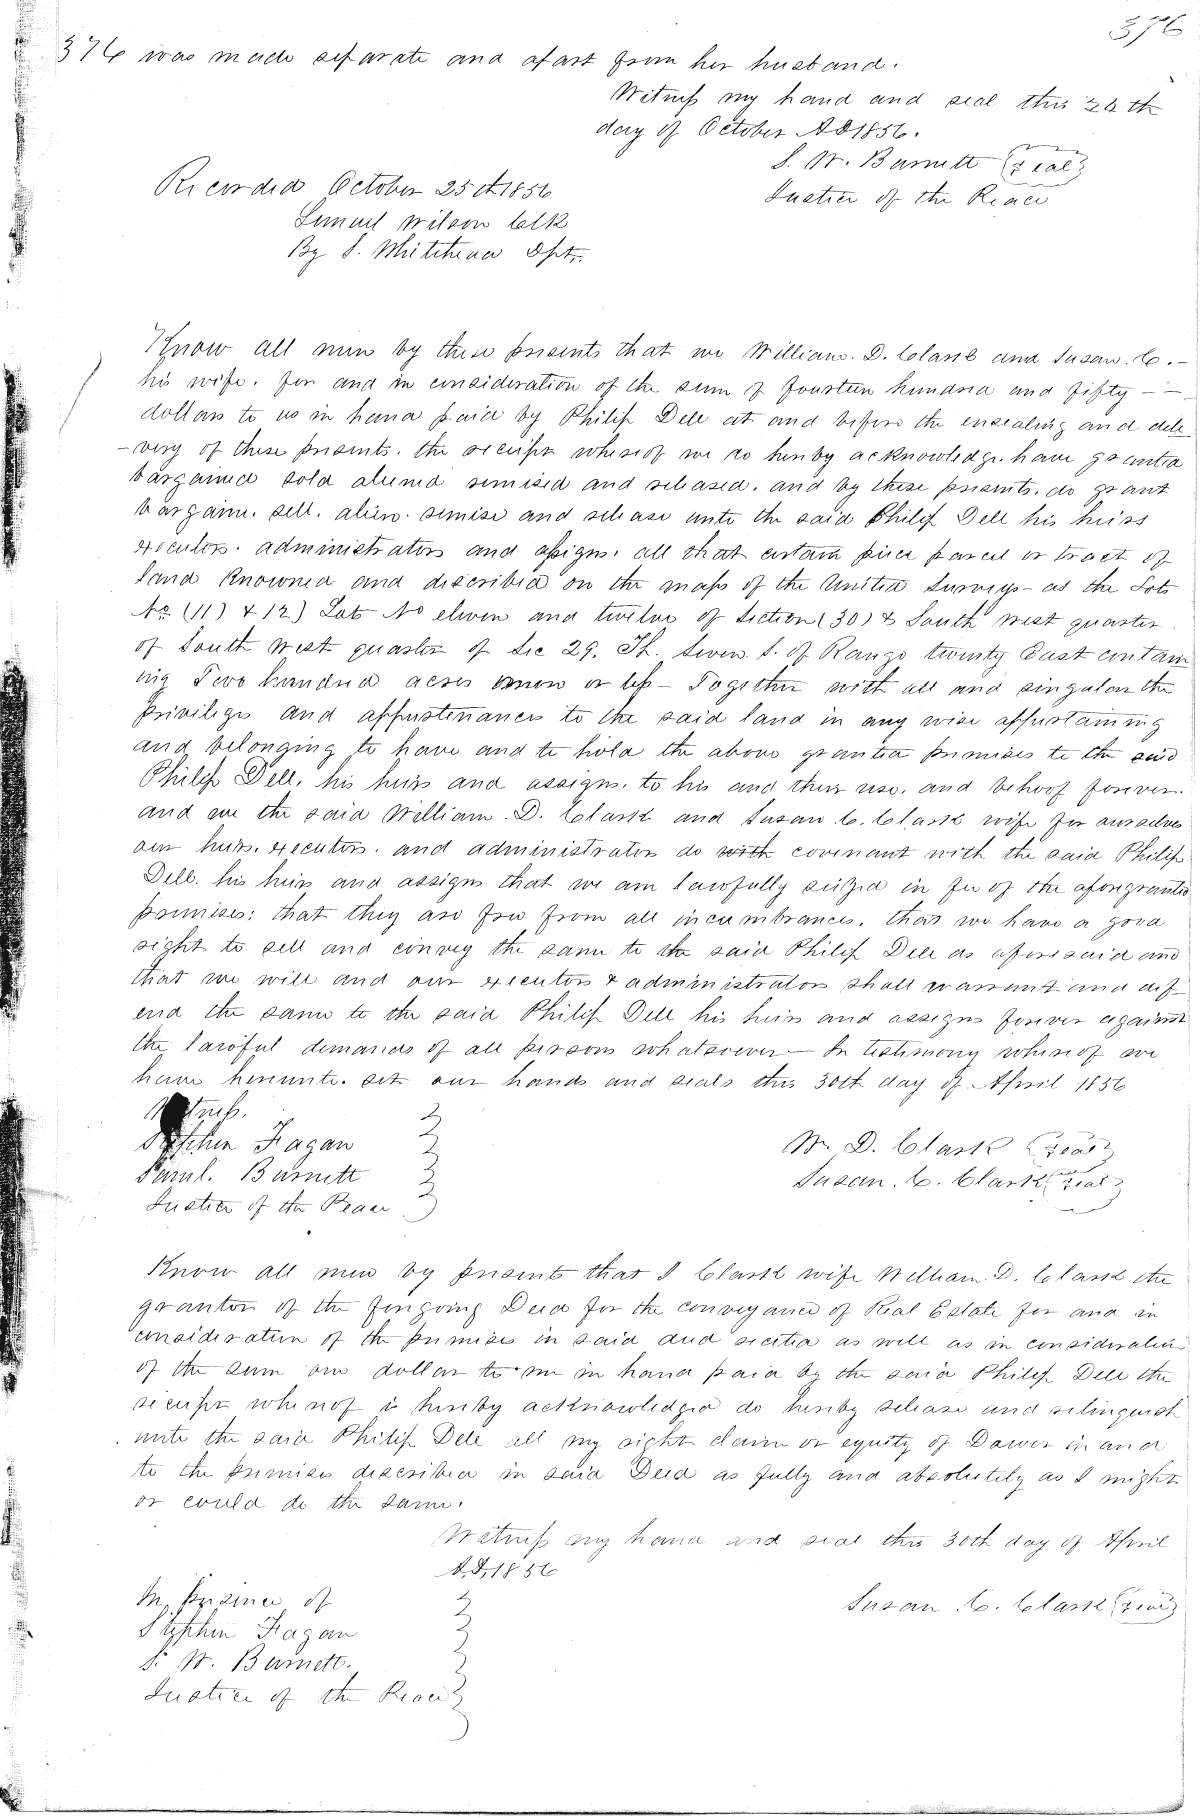 376
376 was made separate and apart from her husband.
Witness my hand and seal this 24th
day of October AD 1856.
S. W. Burnett (seal)
Justice of the Peace
Recorded October 25th 1856
Samuel Wilson Clk
By S. Whitehead Dpt.
Know all men by these presents that we William. D. Clark and Susan. C. -
his wife. for and in consideration of the sum of fourteen hundred and fifty - -
dollars to us in hand paid by Philip Dell at and before the ensealing and deli
-very of these presents. the receipt whereof we do hereby acknowledge. have granted
bargained sold aliened remised and released. and by these presents. do grant
bargain. sell. alien. remise and release unto the said Philip Dell his heirs
executors. administrators and assigns. all that certain piece parcel or tract of
land knowned and described on the maps of the United Surveys - as the Lots
No (11) & 12) Lots No eleven and twelve of Section (30) & South West quarter
of South West quarter of Sec 29. Th. Seven S. of Range twenty East contain
ing Two hundred acres more or less - Together with all and singular the
privileges and appurtenances to the said land in any wise appurtaining
and belonging to have and to hold the above granted premises to the said
Philip Dell. his heirs and assigns. to his and their use. and behoof forever.
and we the said William. D. Clark and Susan. C. Clark wife for ourselves
our heirs. executors. and administrators do with covenant with the said Philip
Dell. his heirs and assigns that we am lawfully seized in fee of the aforegranted
premises: that they are free from all incumbrances. that we have a good
right to sell and convey the same to the said Philip Dell as aforesaid and
that we will and our executors & administrators shall warrant and def-
end the same to the said Philip Dell his heirs and assigns forever against
the lawful demands of all persons whatsoever - In testimony whereof we
have hereunto. set our hands and seals this 30th day of April 1856
Witness.
Stephen Fagan
Saml. Burnett
Justice of the Peace
Wm. D. Clark (seal)
Susan. C. Clark (seal)
Know all men by presents that I Clark wife William. D. Clark the
grantor of the foregoing Deed for the conveyance of Real Estate for and in
consideration of the premises in said deed recited as well as in consideration
of the sum one dollar to me in hand paid by the said Philip Dell the
receipt whereof is hereby acknowledged do hereby release and relinquish
unto the said Philip Dell all my right claim or equity of Dower in and
to the premises described in said Deed as fully and absolutely as I might
or could do the same.
Witness my hand and seal this 30th day of April
A.D. 1856
In presence of
Stephen Fagan
S. W. Burnett.
Justice of the Peace
Susan. C. Clark (seal)